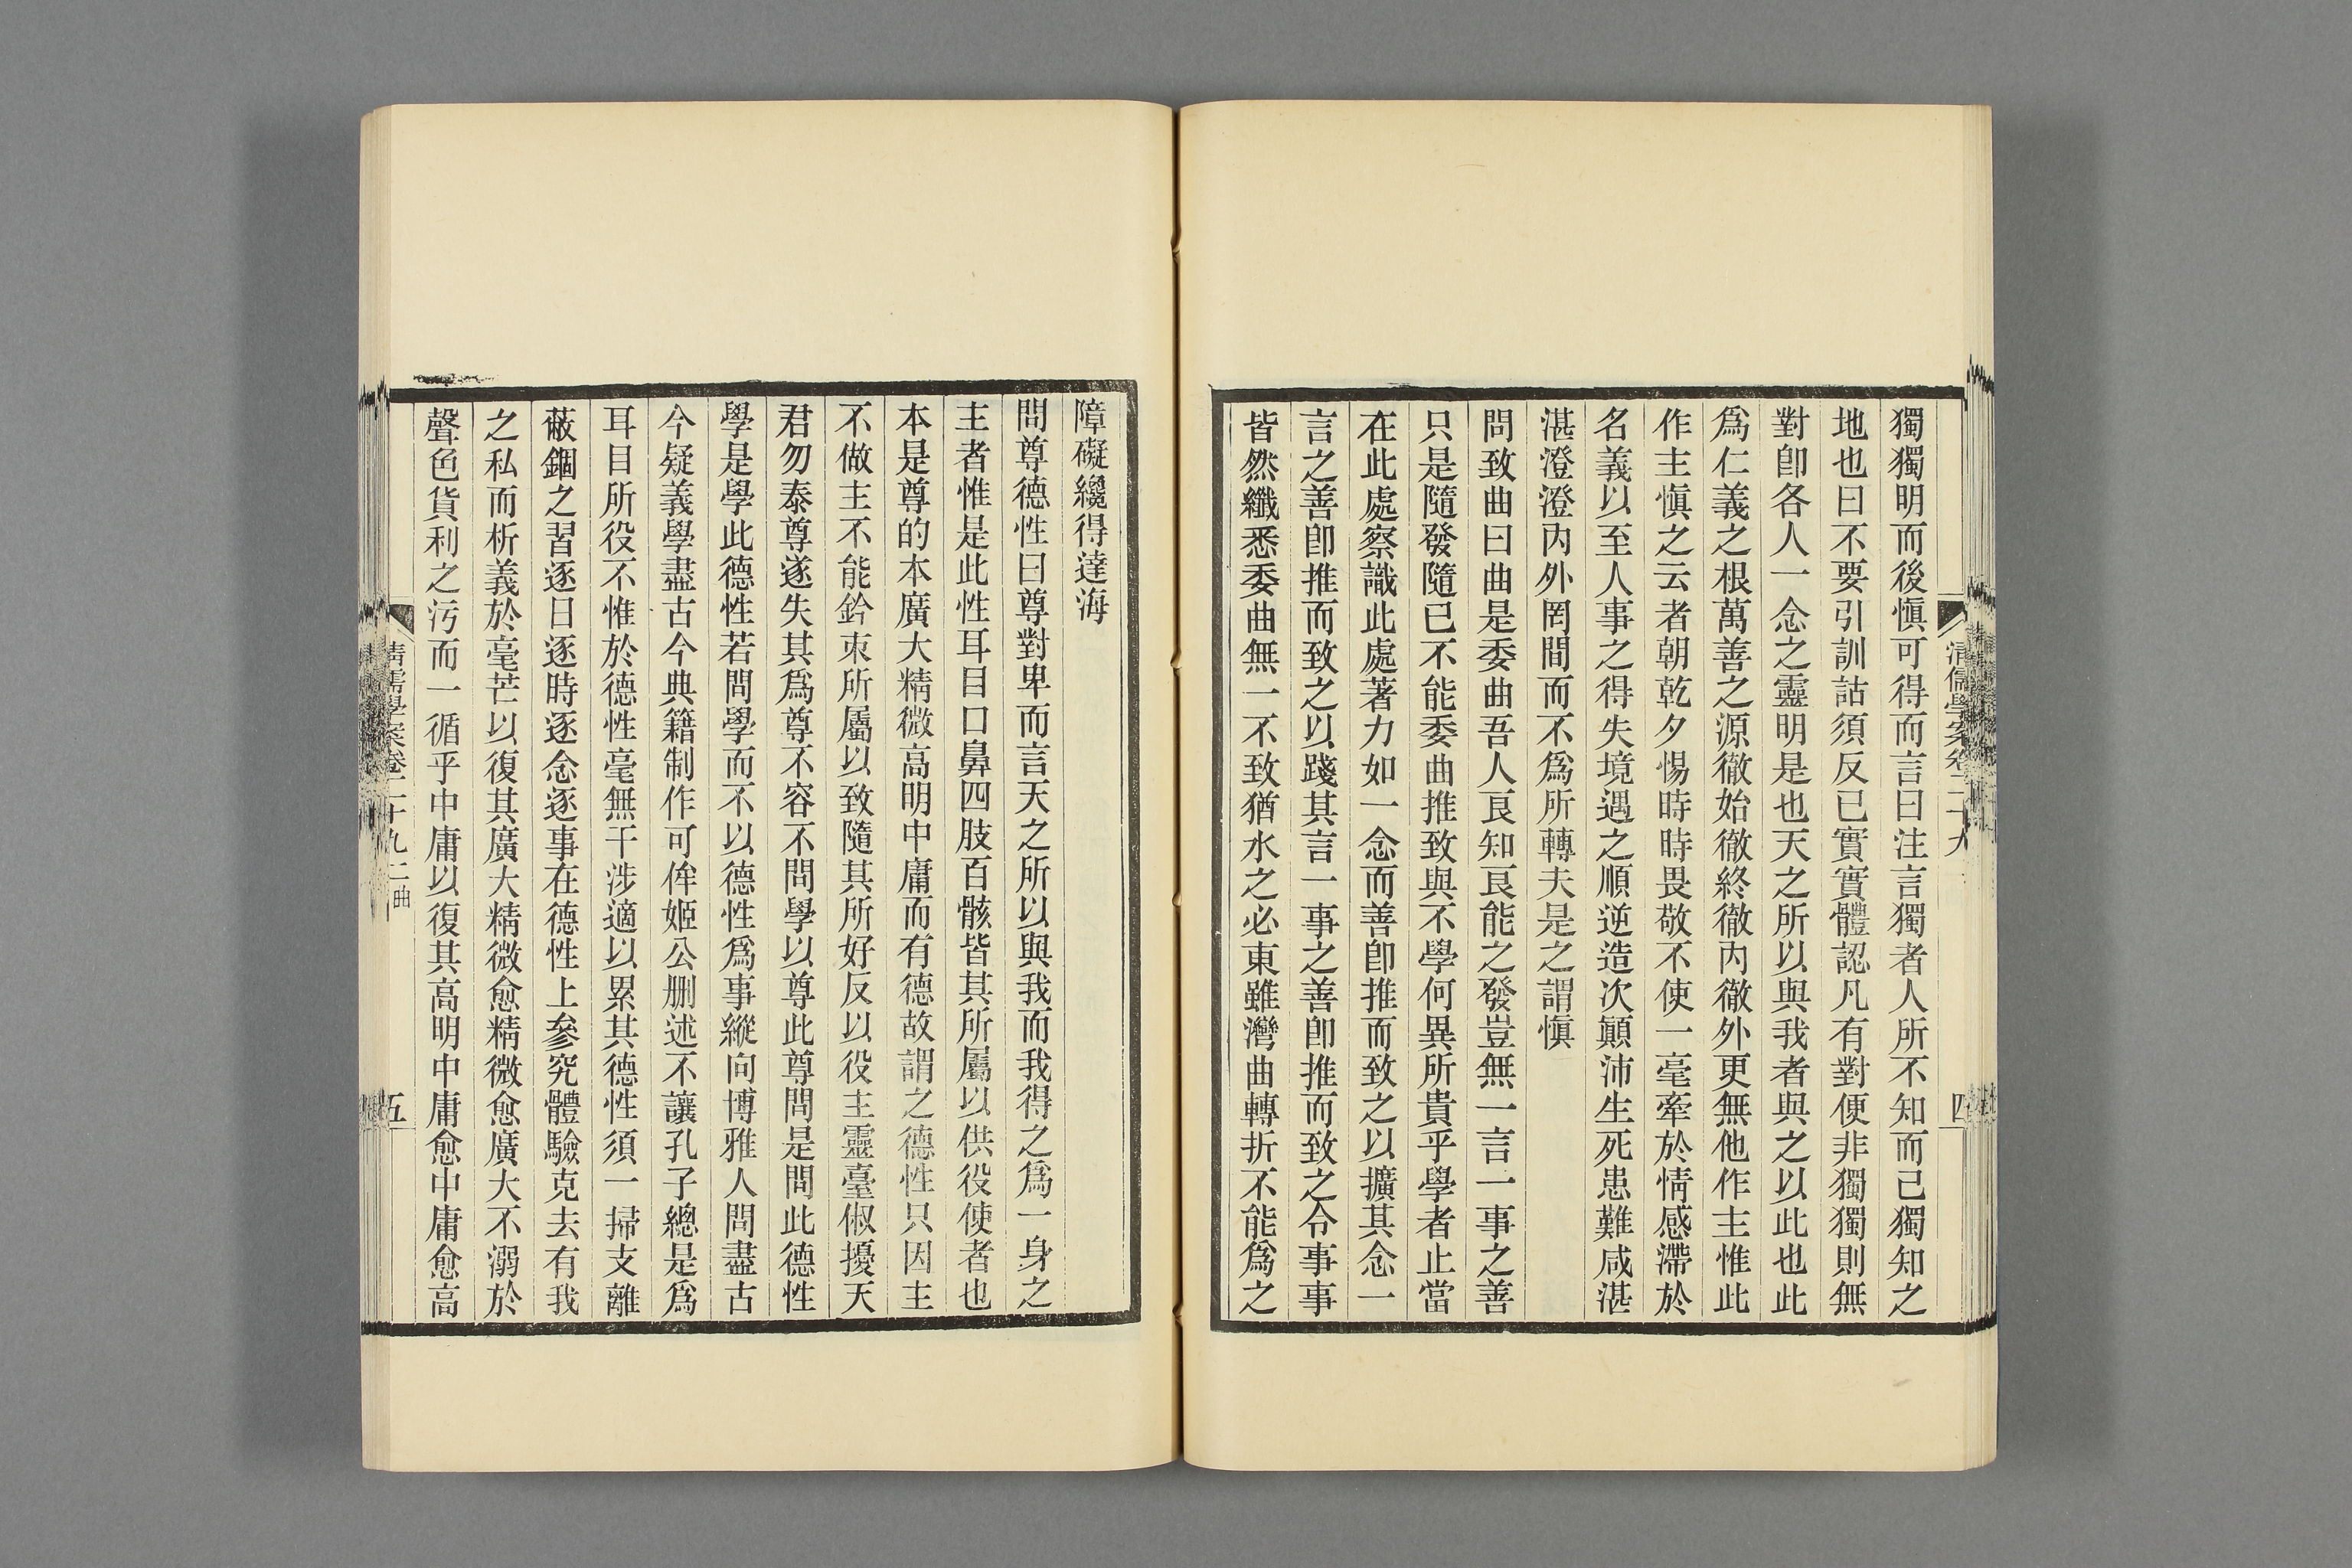 清儒學案卷二十九
四
獨獨明而後愼可得而言曰注言獨者人所不知而己獨知之
地也曰不要引訓詁須反已實實體認凡有對便非獨獨則無
對卽各人一念之靈明是也天之所以與我者與之以此也此
爲仁義之根萬善之源徹始徹終徹內徹外更無他作主惟此
作主愼之云者朝乾夕惕時時畏敬不使一毫牽於情感滯於
名義以至人事之得失境遇之順逆造次顚沛生死患難咸湛
湛澄澄內外罔間而不爲所轉夫是之謂愼
問致曲曰曲是委曲吾人良知良能之發豈無一言一事之善
只是隨發隨已不能委曲推致與不學何異所貴乎學者止當
在此處察識此處著力如一念而善卽推而致之以擴其念一
言之善卽推而致之以踐其言一事之善卽推而致之令事事
皆然纖悉委曲無一不致猶水之必東雖灣曲轉折不能爲之
障礙纔得達海
問尊德性曰尊對卑而言天之所以與我而我得之爲一身之
主者惟是此性耳目口鼻四肢百骸皆其所屬以供役使者也
本是尊的本廣大精微高明中庸而有德故謂之德性只因主
不做主不能鈐束所屬以致隨其所好反以役主靈臺俶擾天
君勿泰尊遂失其爲尊不容不問學以尊此尊問是問此德性
學是學此德性若問學而不以德性爲事縱向博雅人問盡古
今疑義學盡古今典籍制作可侔姬公刪述不讓孔子總是爲
耳目所役不惟於德性毫無干涉適以累其德性須一掃支離
蔽錮之習逐日逐時逐念逐事在德性上參究體驗克去有我
之私而析義於毫芒以復其廣大精微愈精微愈廣大不溺於
聲色貨利之污而一循乎中庸以復其高明中庸愈中庸愈高
清儒學案卷二十九二曲
五